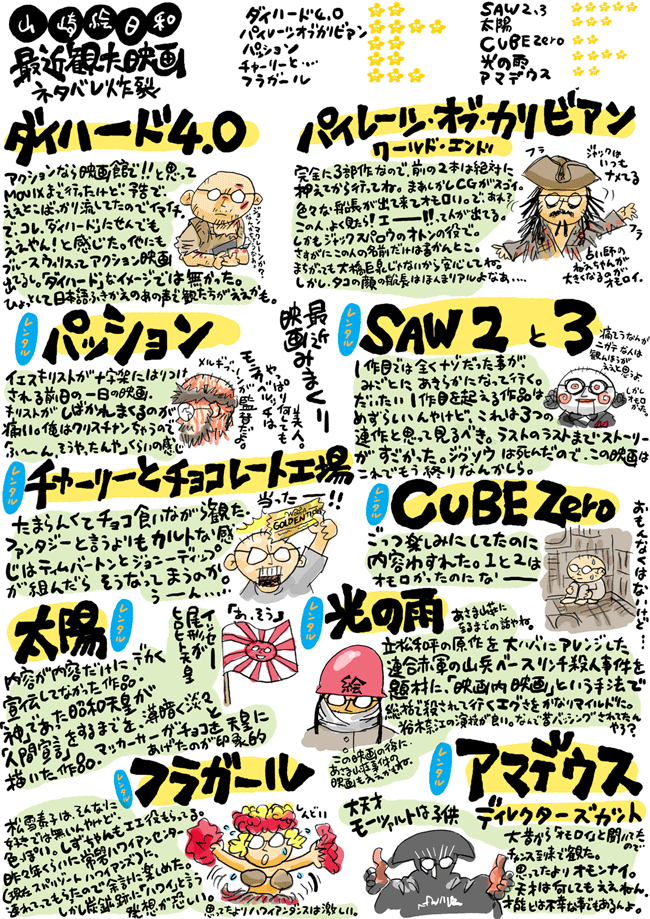 山崎絵日和
最近観た映画
ネタバレ炸裂
ダイハード4.0
パイレーツオブカリビアン
パッション
チャーリーと…
フラガール
SAW2.3
太陽
CUBE Zero
光の雨
アマデウス
ダイハード4.0
アクションなら映画館で!!と思って
MOVIXまで行ったけど…予告で、
ええとこばっかり流してたのでイマイチ。
で、コレ、ダイハードにせんでも
ええやん!と感じた。他にも
ブルース・ウィリスってアクション映画
出てるし。「ダイハード」なイメージでは無かった。
ひょっとして日本語ふきかえのあの声で観たらがええかも。
パイレーツ・オブ・カリビアン
ワールド・エンド
完全に3部作なので、前の2本は絶対に
押えてから行ってね。まぁしかしCGがスゴイ。
色々な船長が出て来てオモロい。で、あれ?
この人、よく見たら!エーーー!!、てんが出てる。
しかもジャックスパロウのオトンの役で。
さすがにこの人の名前だけは書かんとこ。
まちがっても大橋巨泉じゃないから安心してね。
しかし、タコの顔の船長はほんまリアルよなぁ….
ジャックは
いつも
ナメてる
フラ
フラ
占い師の
ねえちゃんが
大きくなるのが
オモロイ.
レンタル
パッション
イエスキリストが十字架にはりつけ
される前日の一日の映画.
キリストが しばかれまくるのが
痛い。俺はクリスチャンちゃうので
「ふ〜ん。そうやったんや」ぐらいの感じ
メルギブソンが監督だよ。
やっぱり何でも
モニカ・ベルッチは
美人。
最近
映画みまくり
レンタル
SAW 2と3
1作目では全くナゾだった事が
みごとに、あきらかになって行く。
だいたい1作目を超える作品は
めずらしいんやけど、これは3つの
連作と思って見るべき。ラストのラストまで・ストーリー
がすごかった。ジグソウは死んだので、この映画は
これでもう終りなんかしら。
痛そうなんが
ニガテな人は
観んほうが
ええと思うよ
しかし
オモロ
かった。
レンタル
チャーリーとチョコレート工場
たまらんくてチョコ食いながら観た。
ファンタジーと言うよりもカルトな感
じはティムバートンとジョニーディップ
が組んだら そうなってまうのか
うーん….
当ったー!!
WONKA
GOLDEN TICKET
レンタル
CUBE Zero
ごっつ楽しみにしてたのに
内容わすれた。1と2は
オモロかったのにな!ー
おもんなくはないけど…
太陽
レンタル
内容が内容だけにデカく
宣伝してなかった作品。
神であった昭和天皇が
「人間宣言」をするまでを、薄暗く淡々と
描いた作品。
マッカーサーがチョコを天皇に
あげたのが印象的
イッセー
尾形が
ヒロヒト天皇
「あ、そう」
レンタル
光の雨
あさま山荘に
なるまでの話やね。
立松和平の原作を大バにアレンジした
連合赤軍の山岳ベースリンチ殺人事件を
題材に、「映画内映画」という手法で
総括で殺されて行くエグさをかなりマイルドに。
裕木奈江の演技が良い。なんで昔バッシングされてたん
やろ?
絵
この映画の後に、
あさま山荘事件の
映画もええかもね。
レンタル
フラガール
松雪泰子は、そんなに
好きでは無いんやけど、
色っぽい。しずちゃんもエエ役もらってる。
昨年くらいに常磐ハワイアンセンター
(現在スパリゾートハワイアンズ)に、
連れてってもらったので余計に楽しめた。
しかし炭鉱跡に「ハワイ」と言う
発想が恐ろしい。
しんどい
思ってたよりハワイアンダンスは激しい。
レンタル
アマデウス
ディレクターズカット
大天才
モーツァルトは子供
大昔からオモロイと聞いたもの
で
チャンス到来で観た。
思ってたよりオモンナイ。
天才は何してもええねん。
才能とは不幸な事でもあるんよ。